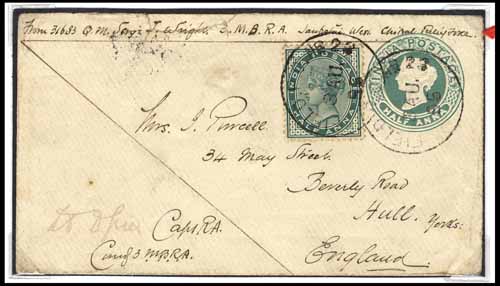 From 31683 Q.M. Sergt J. Wright. 3. M.B.R.A. West Field Force.
INDIA POSTAGE
HALF ANNA
INDIA POSTAGE
HALF ANNA
Mrs. J. Purcell
34 May Street.
Beverly Road
Hull. Yorks:
England.
Capt. R.A.
Comg 3 M.B.R.A.